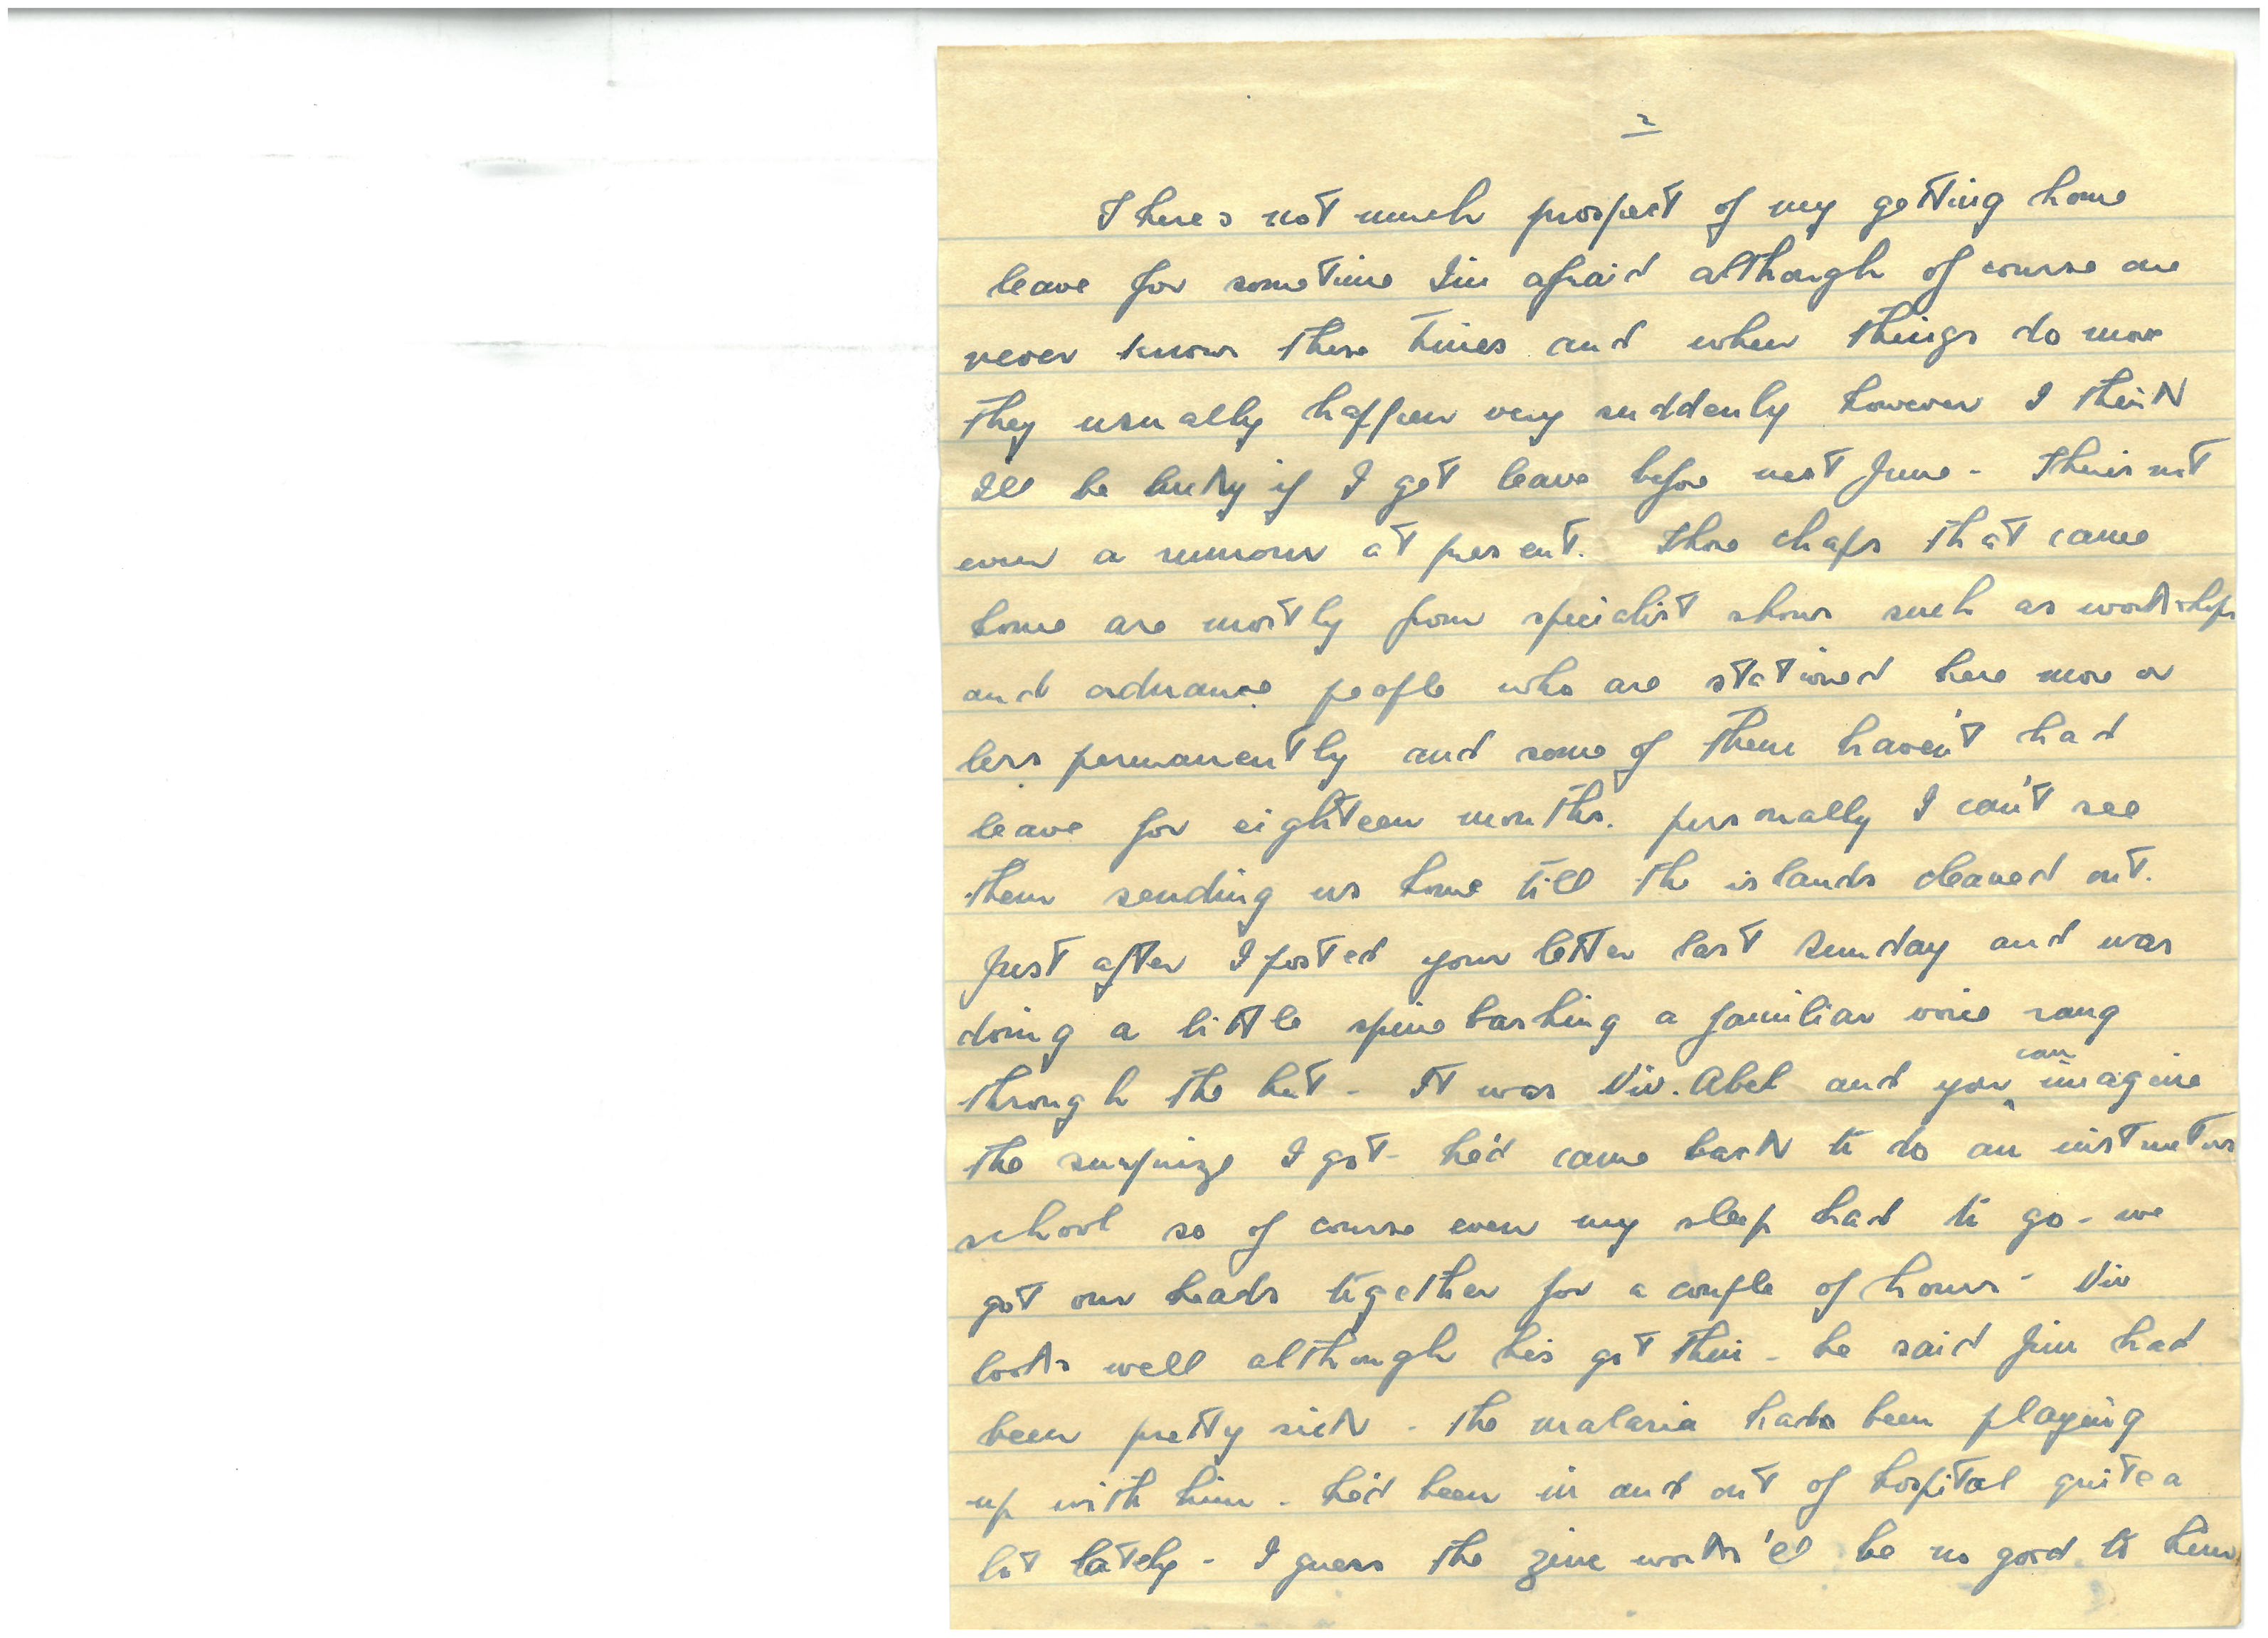 2
Theres not much prospect of my getting home
leave for sometime I'm afraid although of course one
never knows these times and when things do move
they usually happen very suddenly however I think
Ill be lucky if I get leave before next June - Theirs not
even a rumour at present. Those chaps that came
home are mostly from specialist shows such as workshops
and ordnance people who are stationed here more or
less permanently and some of them haven't had
leave for eighteen months. personally I can't see
them sending us home till the islands cleaned out.
Just after I posted your letter last Sunday and was
doing a little spine bashing a familiar voice rang
through the hut - It was Viv. Abel and you can imagine
the surprize I got - he'd came back to do an instructors
school so of course even my sleep had to go - we
got our heads together for a couple of hours - Viv
looks well although his got thin - he said Jim had
been pretty sick - the malaria had been playing
up with him - he'd been in and out of hospital quite a
bit lately - I guess the zinc works 'ld be no good to him